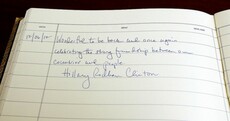 Wonderful to be back and once again
celebrating the strong friendship between our
countries and people
Hillary Rodham Clinton